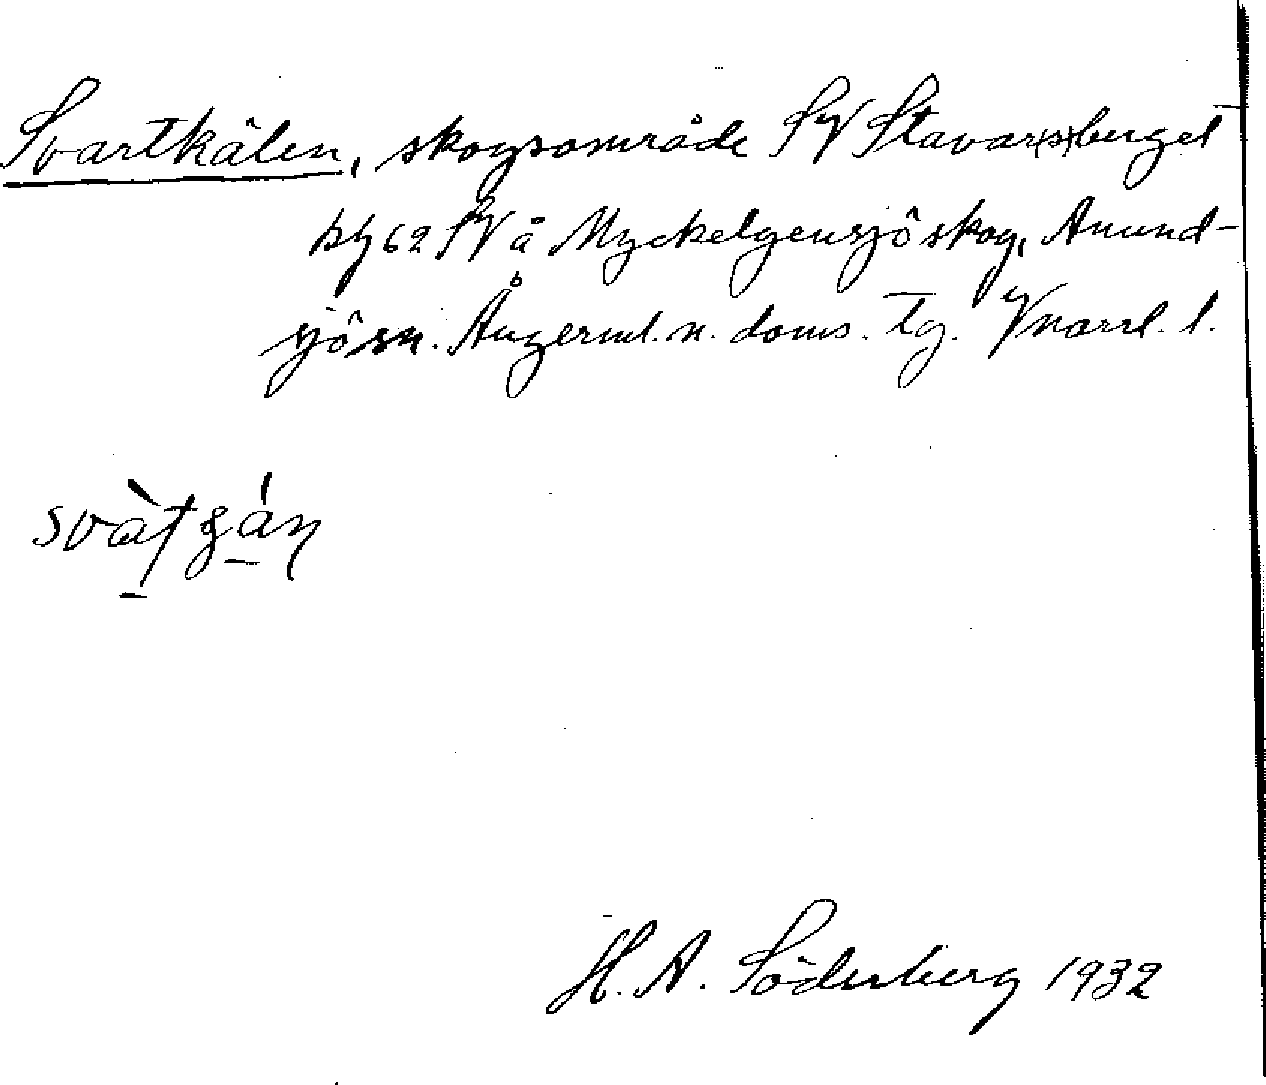 Svartkälen, skogsområde SV Stavar(s)berget
kh 62 SV å Myckelgensjö skog, Anund-
sjö sn. Ångerml. n. doms. tg. Vnorrl. l.
H. A. Söderberg 1932